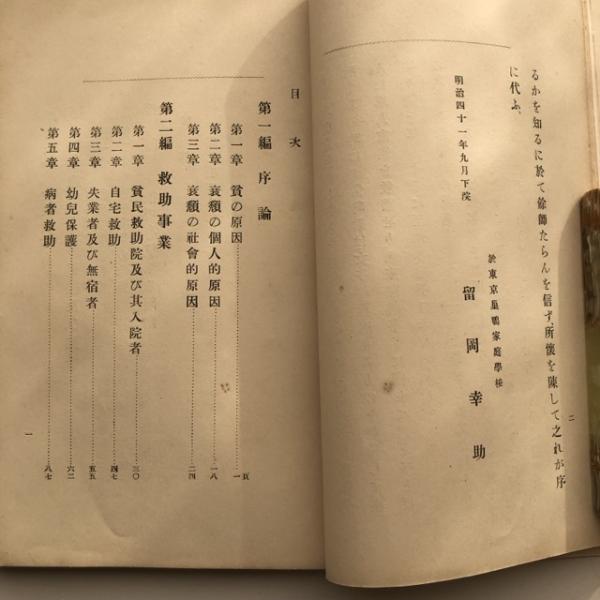 るかを知るに於て餘師たらんを信ず、所懷を陳して之れが序
に代ふ、
明治四十一年九月下院
於東京巢鴨家庭學校
留岡幸助
二
目次
第一編 序論
第一章 貧の原因 一頁
第二章 衰頽の個人的原因 一八
第三章 衰頽の社會的原因 二四
第二編 救助事業
第一章 貧民救助院及び其入院者 三〇
第二章 自宅救助 四七
第三章 失業者及び無宿者 五五
第四章 幼兒保護 六二
第五章 病者救助 八七
一